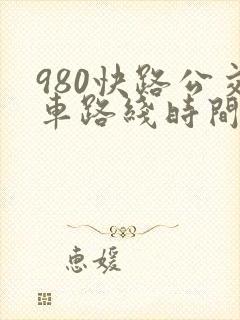 980快路公交
車路綫時間
恵媛